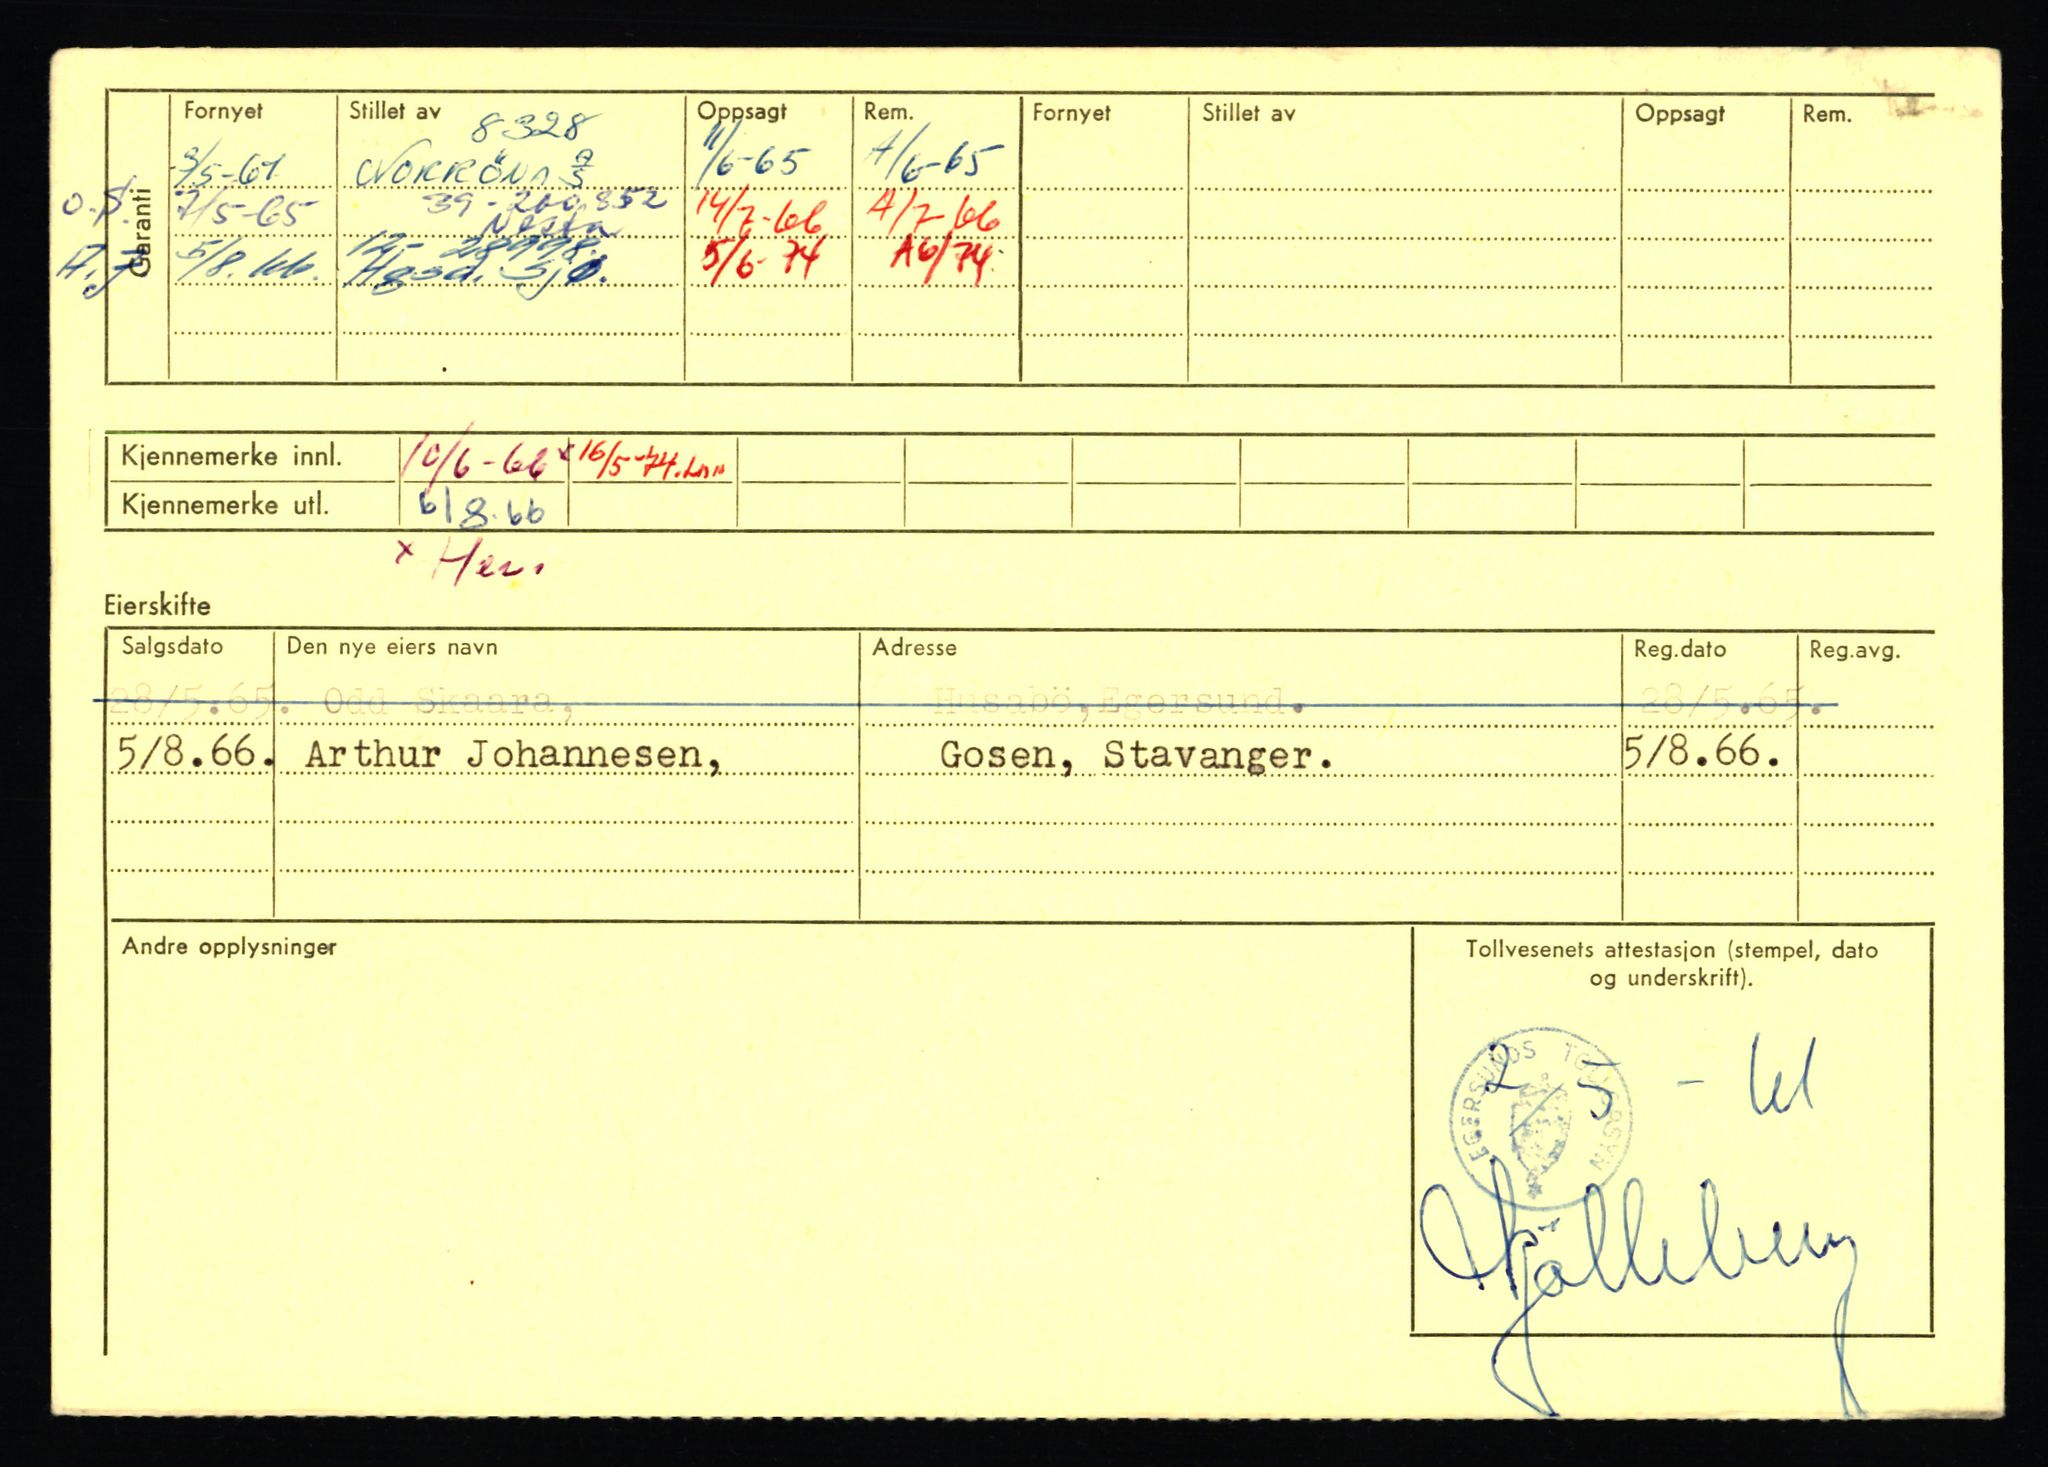 Garanti
Fornyet Stillet av Oppsagt Rem. Fornyet Stillet av Oppsagt Rem.
8328
3/5-61 NORRÖNA A/S 11/6-65 A/6-65
O.S. 7/5-65 39-200852 14/7-66 A/7-66
A.J. 5/8.66. 12- 5/6-74 A6/74.
Hgsd. Sjø.
Kjennemerke innl. 10/6-66 x 16/5-74.
Kjennemerke utl. 6/8.66
x Hen.
Eierskifte
Salgsdato Den nye eiers navn Adresse Reg.dato Reg.avg.
28/5.65. Odd Skaara, Husabö, Egersund. 28/5.65.
5/8.66. Arthur Johannesen, Gosen, Stavanger. 5/8.66.
Andre opplysninger
Tollvesenets attestasjon (stempel, dato
og underskrift).
EGERSUNDS
2/5 - 61